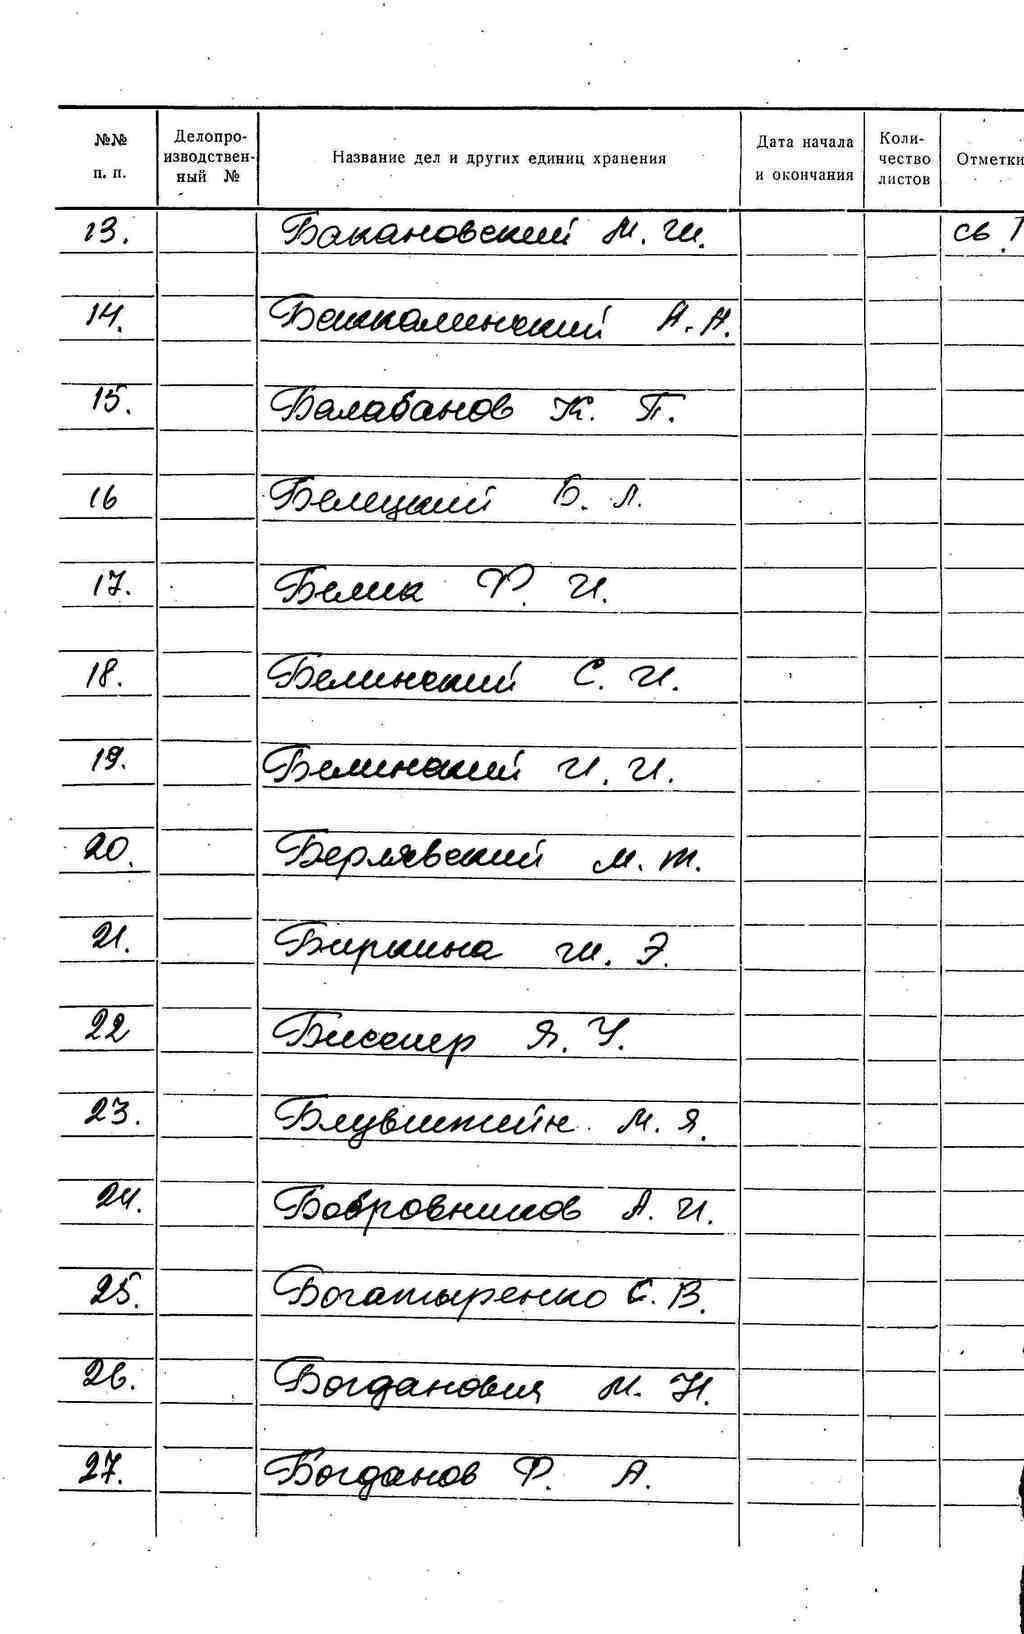 №№ п. п. Делопроизводственный № Название дел и других единиц хранения Дата начала и окончания Количество листов Отметки
13. Бакановский М. Ш. св. 1
14. Башкалинский А. А.
15. Балабанов К. П.
16 Белецкий Б. Л.
17. Белик Ф. И.
18. Белинский С. И.
19. Белинский И. И.
20. Берлявский М. Т.
21. Биркина Ш. Э.
22 Бисслер Я. У.
23. Блувштейн М. Я.
24. Бобровников А. И.
25. Богатыренко С. В.
26. Богданович М. Н.
27. Богданов Ф. А.